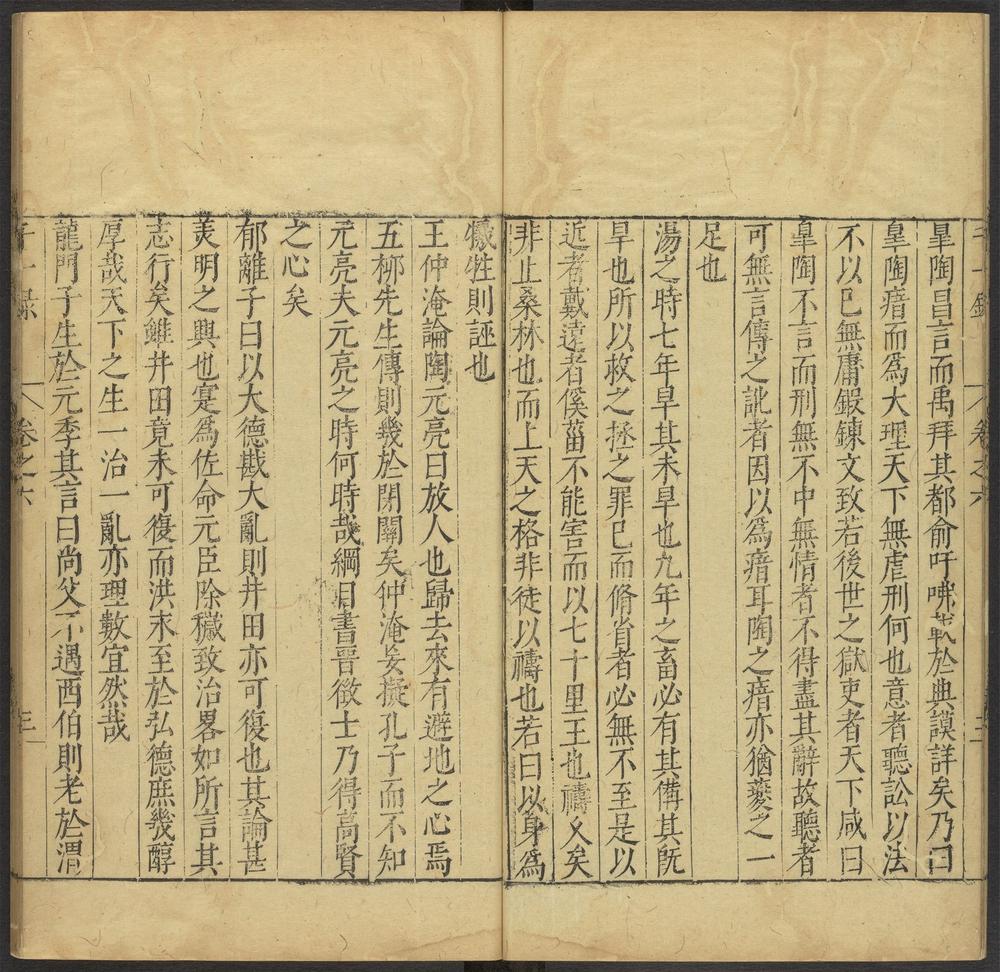 皐陶昌言而禹拜其都俞吁咈載於典謨詳矣乃曰
皐陶瘖而為大理天下無虐刑何也意者聽訟以法
不以已無庸鍛鍊文致若後世之獄吏者天下咸曰
皐陶不言而刑無不中無情者不得盡其辭故聽者
可無言傳之訛者因以為瘖耳陶之瘖亦猶夔之一
足也
湯之時七年旱其未旱也九年之畜必有其俻其旣
旱也所以救之拯之罪已而脩省者必無不至是以
近者戴遠者徯葘不能害而以七十里王也禱乂矣
非止桑林也而上天之格非徒以禱也若曰以身為
犧牲則誣也
王仲淹論陶元亮曰放人也歸去來有避地之心焉
五栁先生傳則幾於閉關矣仲淹妄擬孔子而不知
元亮夫元亮之時何時哉綱目書晉徵士乃得高賢
之心矣
郁離子曰以大德戡大亂則井田亦可復也其論甚
羙明之興也寔為佐命元臣除穢致治畧如所言其
志行矣雖井田竟未可復而洪永至於弘德庶幾醇
厚哉天下之生一治一亂亦理數宜然哉
龍門子生於元季其言曰尚父不遇西伯則老於渭
卷之六
三